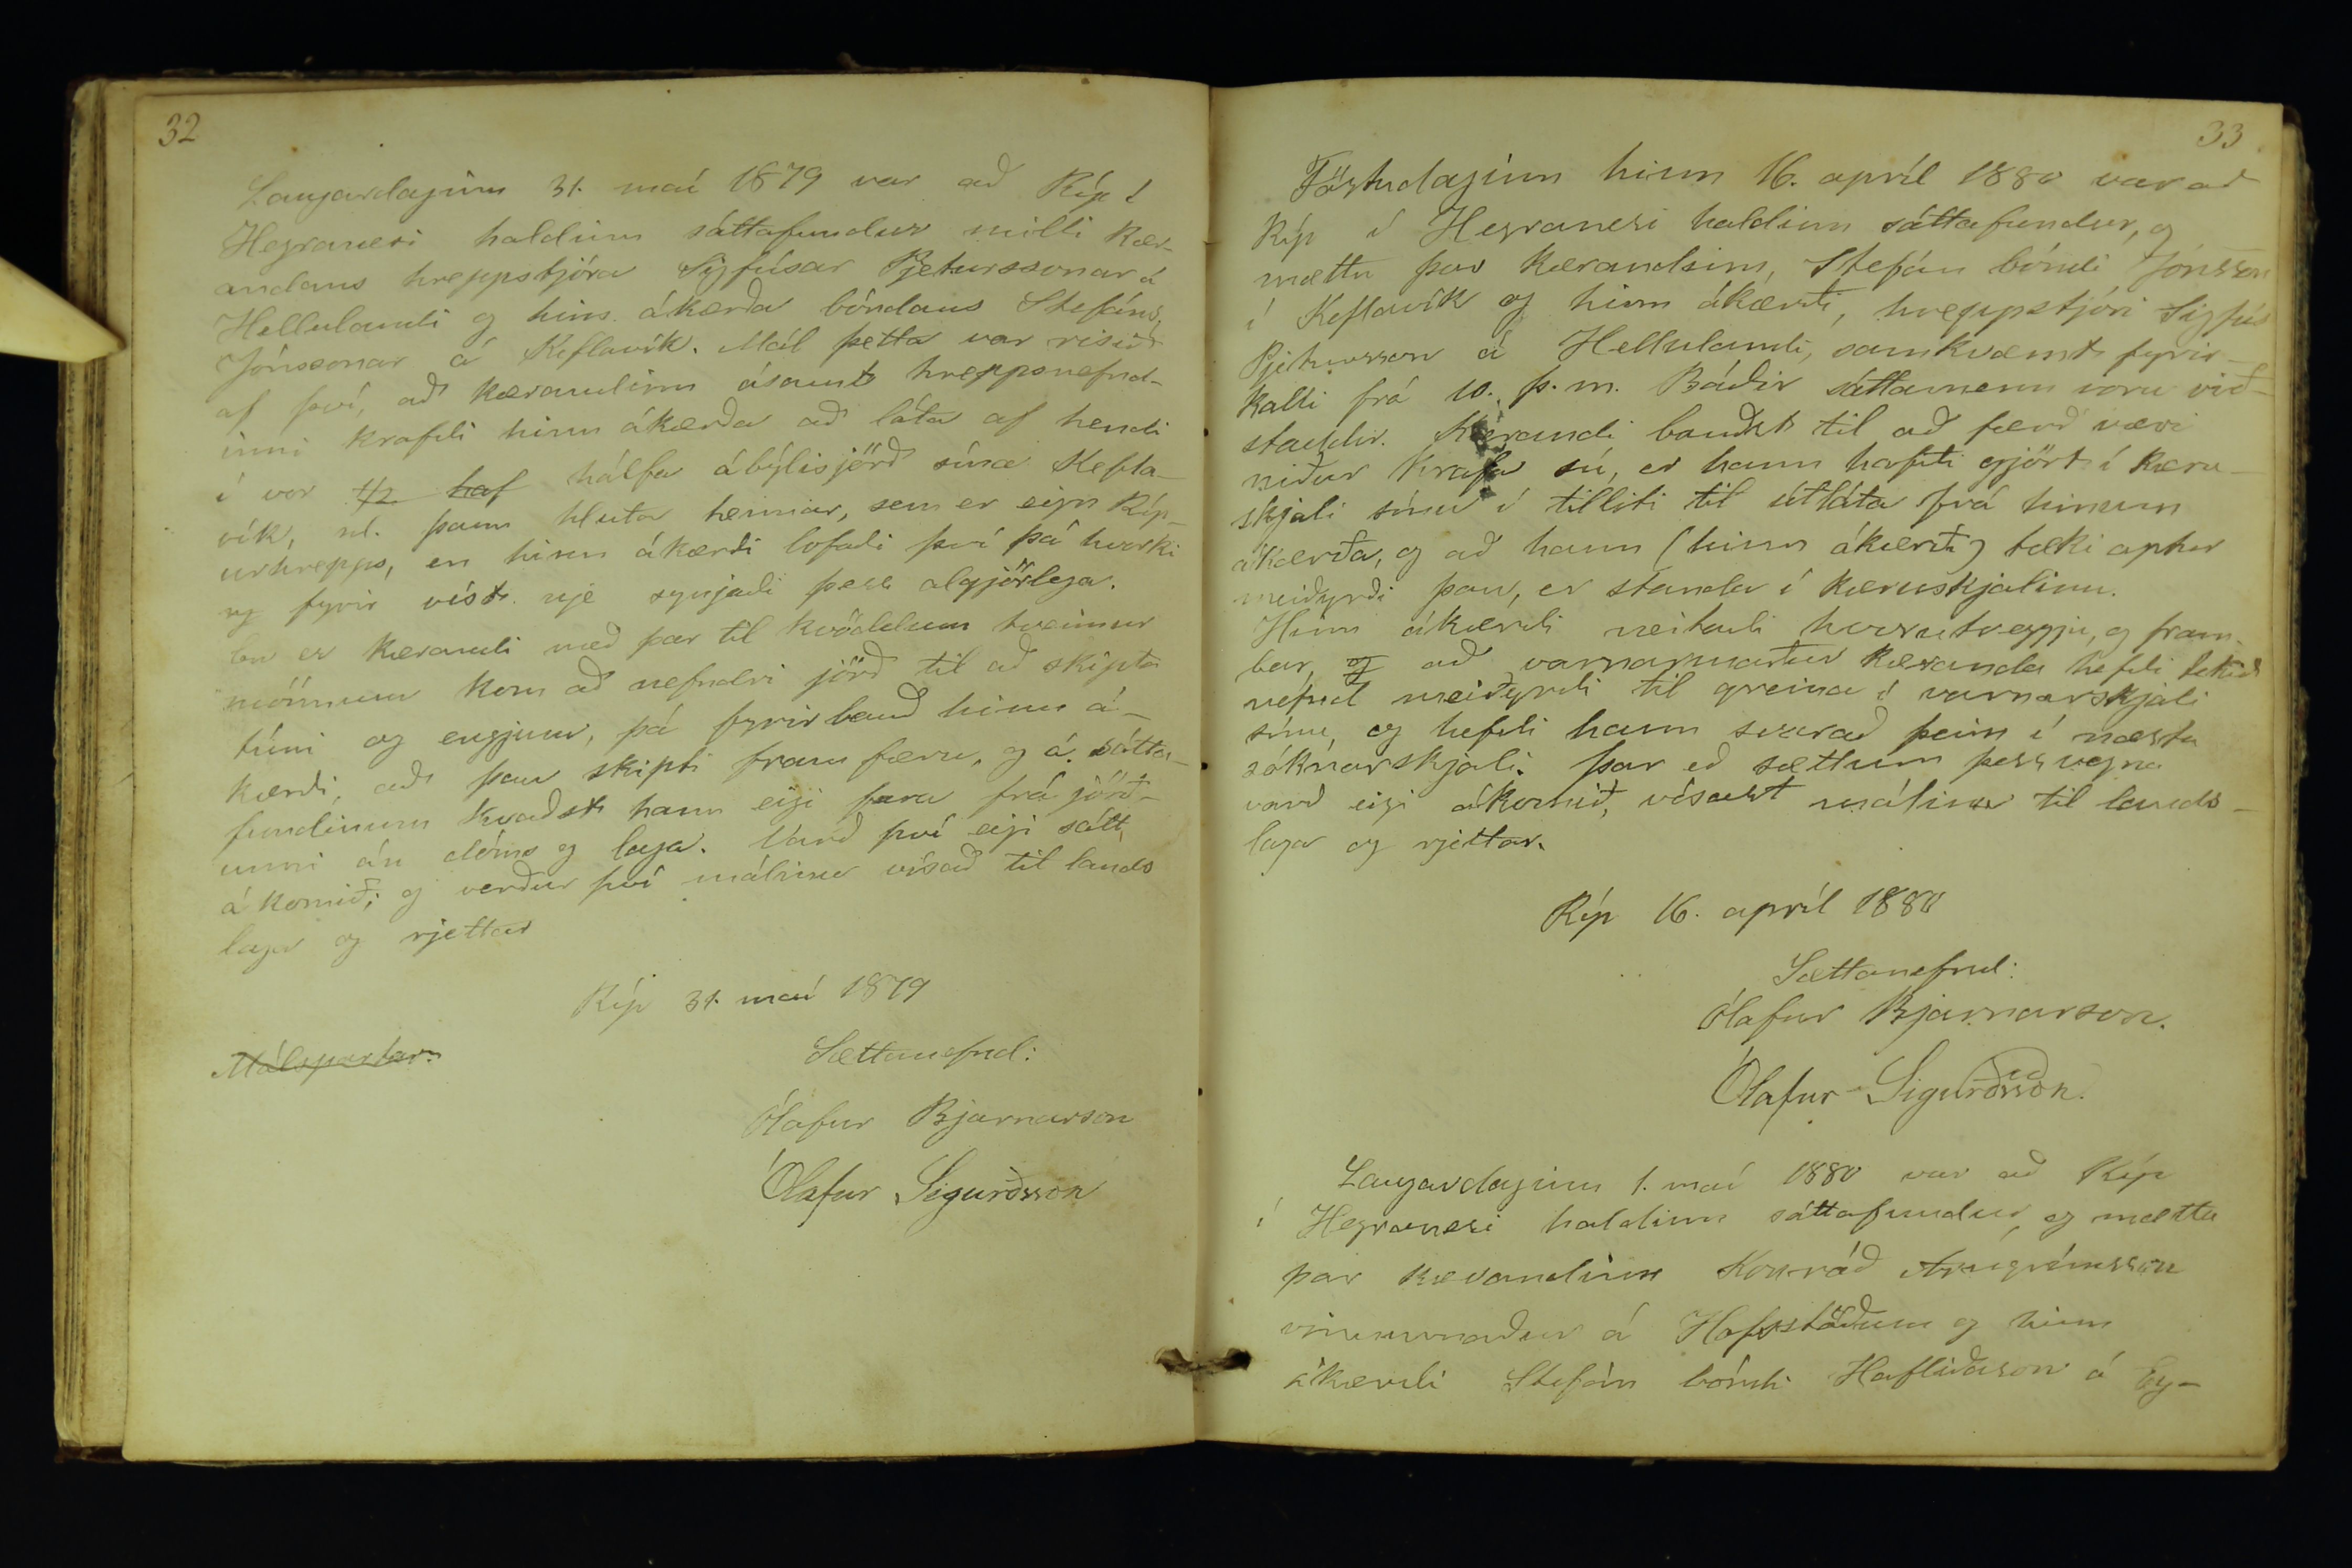 32
Laugardaginn 31. maí 1879 var að Ríp í
Hegranesi haldinn sáttafundur milli kær-
andans hreppstjóra Sigfúsar Pjeturssonar á
Hellulandi og hins ákærða bóndans Stefáns
Jónssonar á Keflavík. Mál þetta var risið
af því, að kærandinn ásamt hreppsnefnd-
inni krafði hinn ákærða að láta af hendi
í vor 1/2 haf hálfa ábýlisjörð sína Kefla-
vík, nl. þann hluta hennar, sem er eign Ríp-
urhrepps, en hinn ákærði lofaði því þá hvorki
og fyrir víst nje synjaði þess algjörlega.
En er kærandi með þar til kvöddum tveimur
mönnum kom að nefndri jörð til að skipta
túni og engjum, þá fyrirbauð hinn á-
kærði, að þau skipti fram færu, og á sátta-
fundinum kvaðst hann eigi fara frá jörð-
unni án dóms og laga. Varð því eigi sátt
á komið; og verður því málinu vísað til lands
laga og rjettar
Ríp 31. maí 1879
Málspartar:
Sættanefnd:
Ólafur Bjarnarson
Ólafur Sigurðsson
33
Föstudaginn hinn 16. apríl 1880 var að
Ríp í Hegranesi haldinn sáttafundur, og
mættu þar kærandinn, Stefán bóndi Jónsson
í Keflavík og hinn ákærði, hreppstjóri Sigfús
Pjetursson á Hellulandi, samkvæmt fyrir-
kalli frá 10. þ. m. Báðir sáttamenn voru við-
staddir. Kærandi bauðst til að færð væri
niður krafa sú, er hann hafði gjört í kæru-
skjali sínu í tilliti til útláta frá hinum
ákærða, og að hann (hinn ákærði) tæki aptur
meiðyrði þau, er standa í kæruskjalinu.
Hinn ákærði neitaði hvorutveggju, og fram-
bar, og að varnarmaður kæranda hefði tekið
nefnd meiðyrði til greina í varnarskjali
sínu, og hefði hann svarað þeim í næsta
sóknarskjali. Þar eð sættum þess vegna
varð eigi ákomið, vísast málinu til lands-
laga og rjettar.
Ríp 16. apríl 1880
Sættanefnd:
Ólafur Bjarnarson.
Ólafur Sigurðsson.
Laugardaginn 1. maí 1880 var að Ríp
í Hegranesi haldinn sáttafundur, og mættu
þar kærandinn Konráð Arngrímsson
vinnumaður á Hafsstöðum og hinn
ákærði Stefán bóndi Hafliðason á Ey-